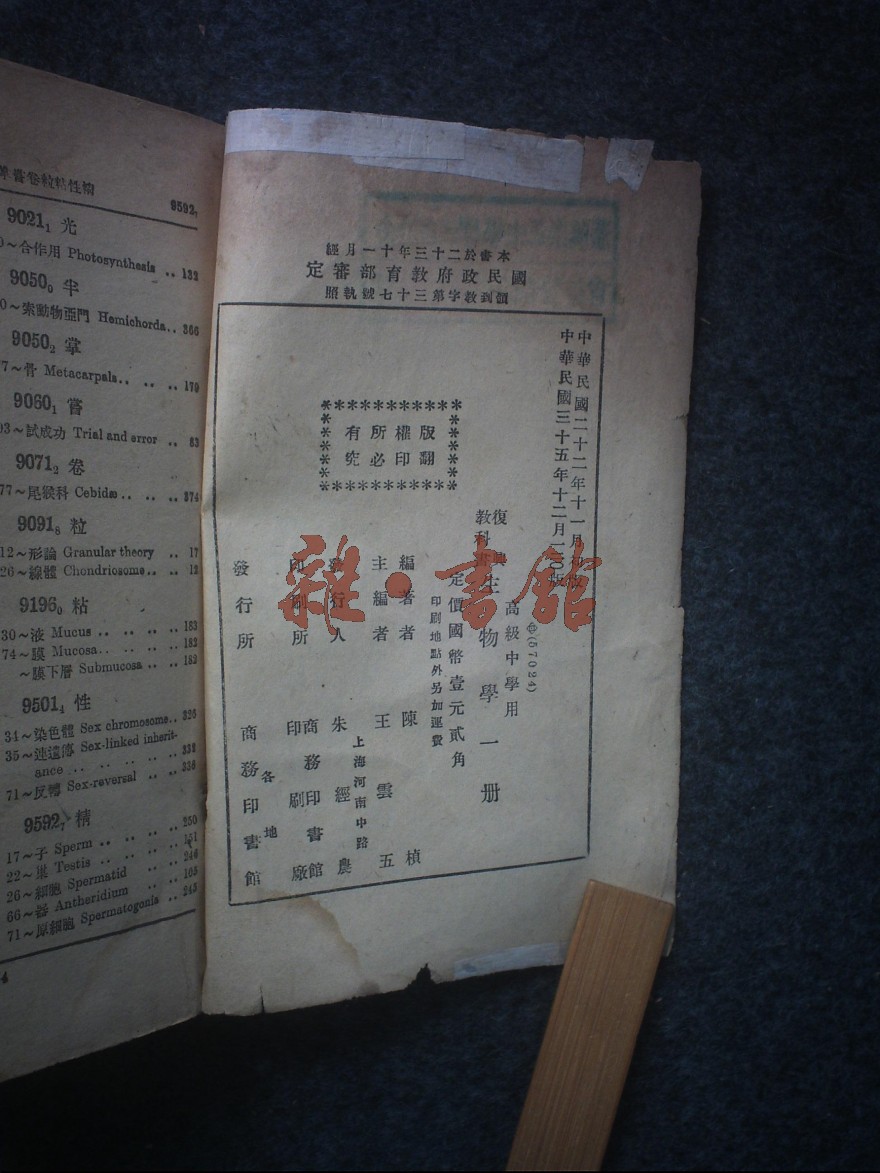 9592₇
9021₁ 光
~合作用 Photosynthesis .. 132
9050₀ 半
~索動物亞門 Hemichorda.. 366
9050₂ 掌
77~骨 Metacarpals.. .. .. 170
9060₁ 嘗
03~試成功 Trial and error .. 83
9071₂ 卷
77~尾猴科 Cebidæ.. .. .. 374
9091₈ 粒
12~形論 Granular theory .. 17
26~線體 Chondriosome.. .. 12
9196₀ 粘
30~液 Mucus .. .. .. .. 183
74~膜 Mucosa.. .. .. .. 182
~膜下層 Submucosa .. .. 182
9501₄ 性
34~染色體 Sex chromosome.. 326
35~連遺傳 Sex-linked inherit-
ance .. .. .. .. .. 332
71~反轉 Sex-reversal .. .. 338
9592₇ 精
17~子 Sperm .. .. .. .. 250
22~巢 Testis .. .. .. .. 151
26~細胞 Spermatid .. .. 246
66~器 Antheridium .. .. 105
71~原細胞 Spermatogonia .. 245
4
本書於二十三年十一月經
國民政府教育部審定
領到教字第三十七號執照
中華民國二十二年十一月初版
中華民國三十五年十二月一〇版
版權所有
翻印必究
(57024)
高級中學用
復興
教科書
生物學一册
定價國幣壹元貳角
印刷地點外另加運費
編著者 陳楨
主編者 王雲五
上海河南中路
發行人 朱經農
印刷所 商務印書館
印刷廠
各地
發行所 商務印書館
雜·書館